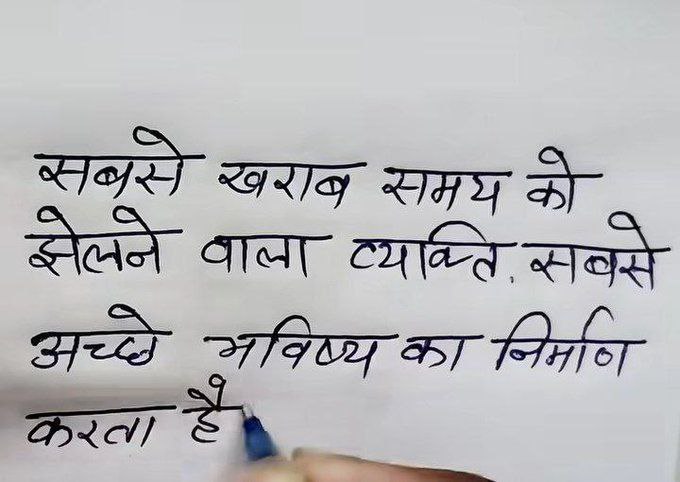 सबसे खराब समय को
झेलने वाला व्यक्ति, सबसे
अच्छे भविष्य का निर्माण
करता है